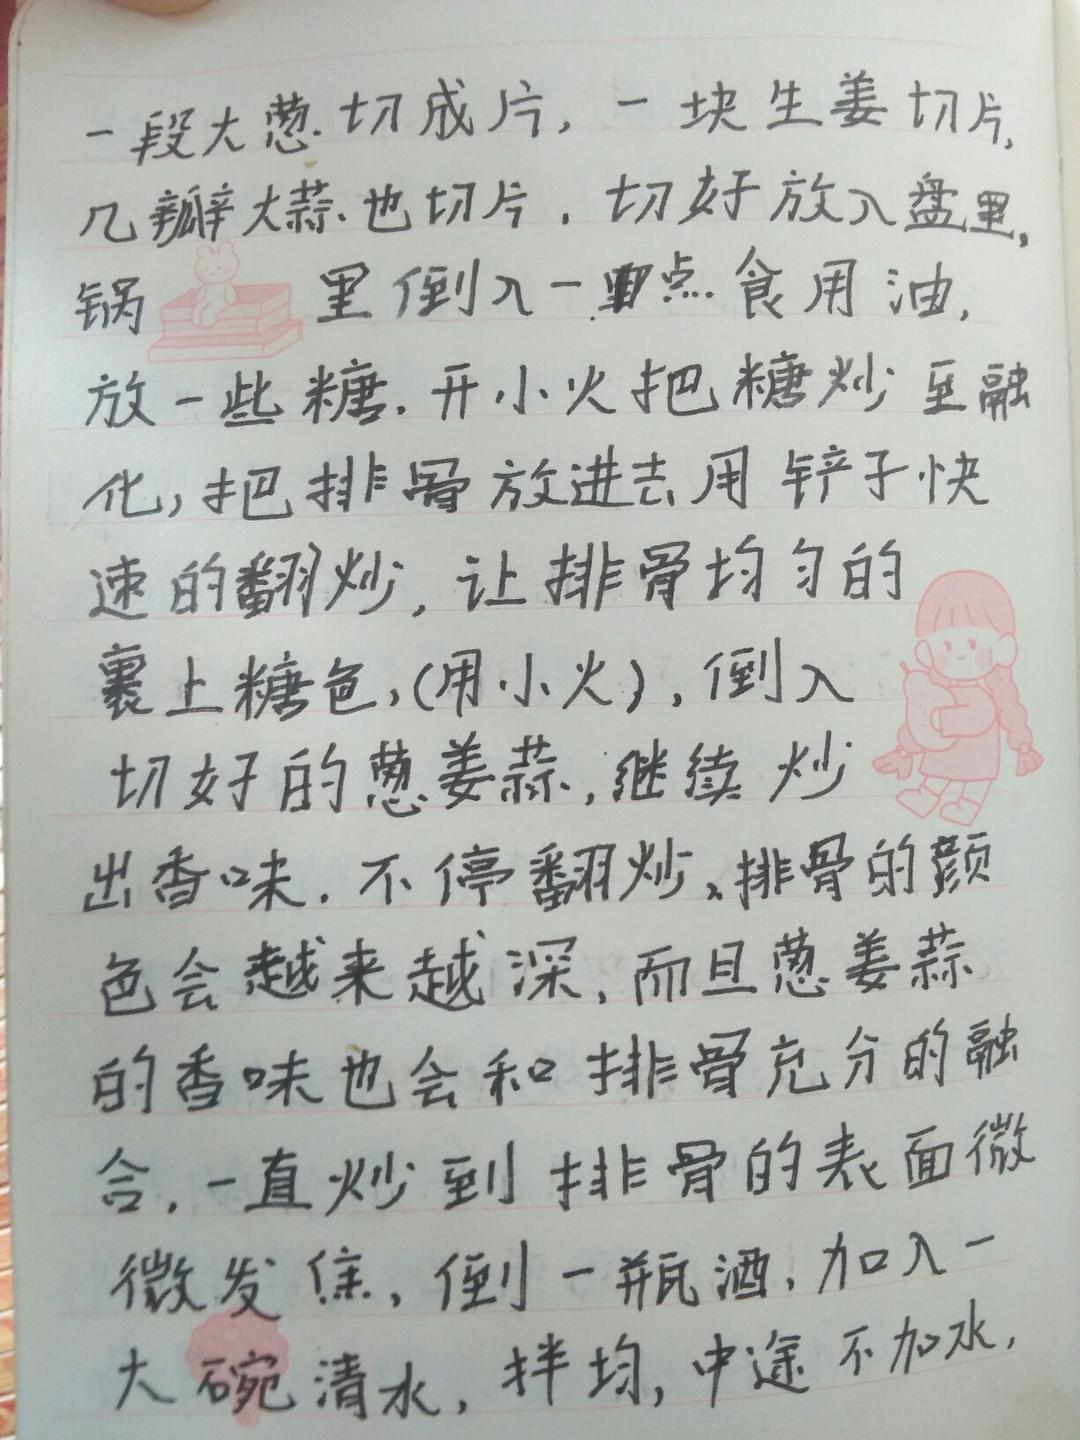 一段大葱切成片，一块生姜切片，
几瓣大蒜也切片．切好放入盘里，
锅里倒入一点食用油，
放一些糖．开小火把糖炒至融
化，把排骨放进去用铲子快
速的翻炒，让排骨均匀的
裹上糖色，(用小火)，倒入
切好的葱姜蒜，继续炒
出香味．不停翻炒、排骨的颜
色会越来越深，而且葱姜蒜
的香味也会和排骨充分的融
合．一直炒到排骨的表面微
微发焦，倒一瓶酒，加入一
大碗清水，拌均，中途不加水，